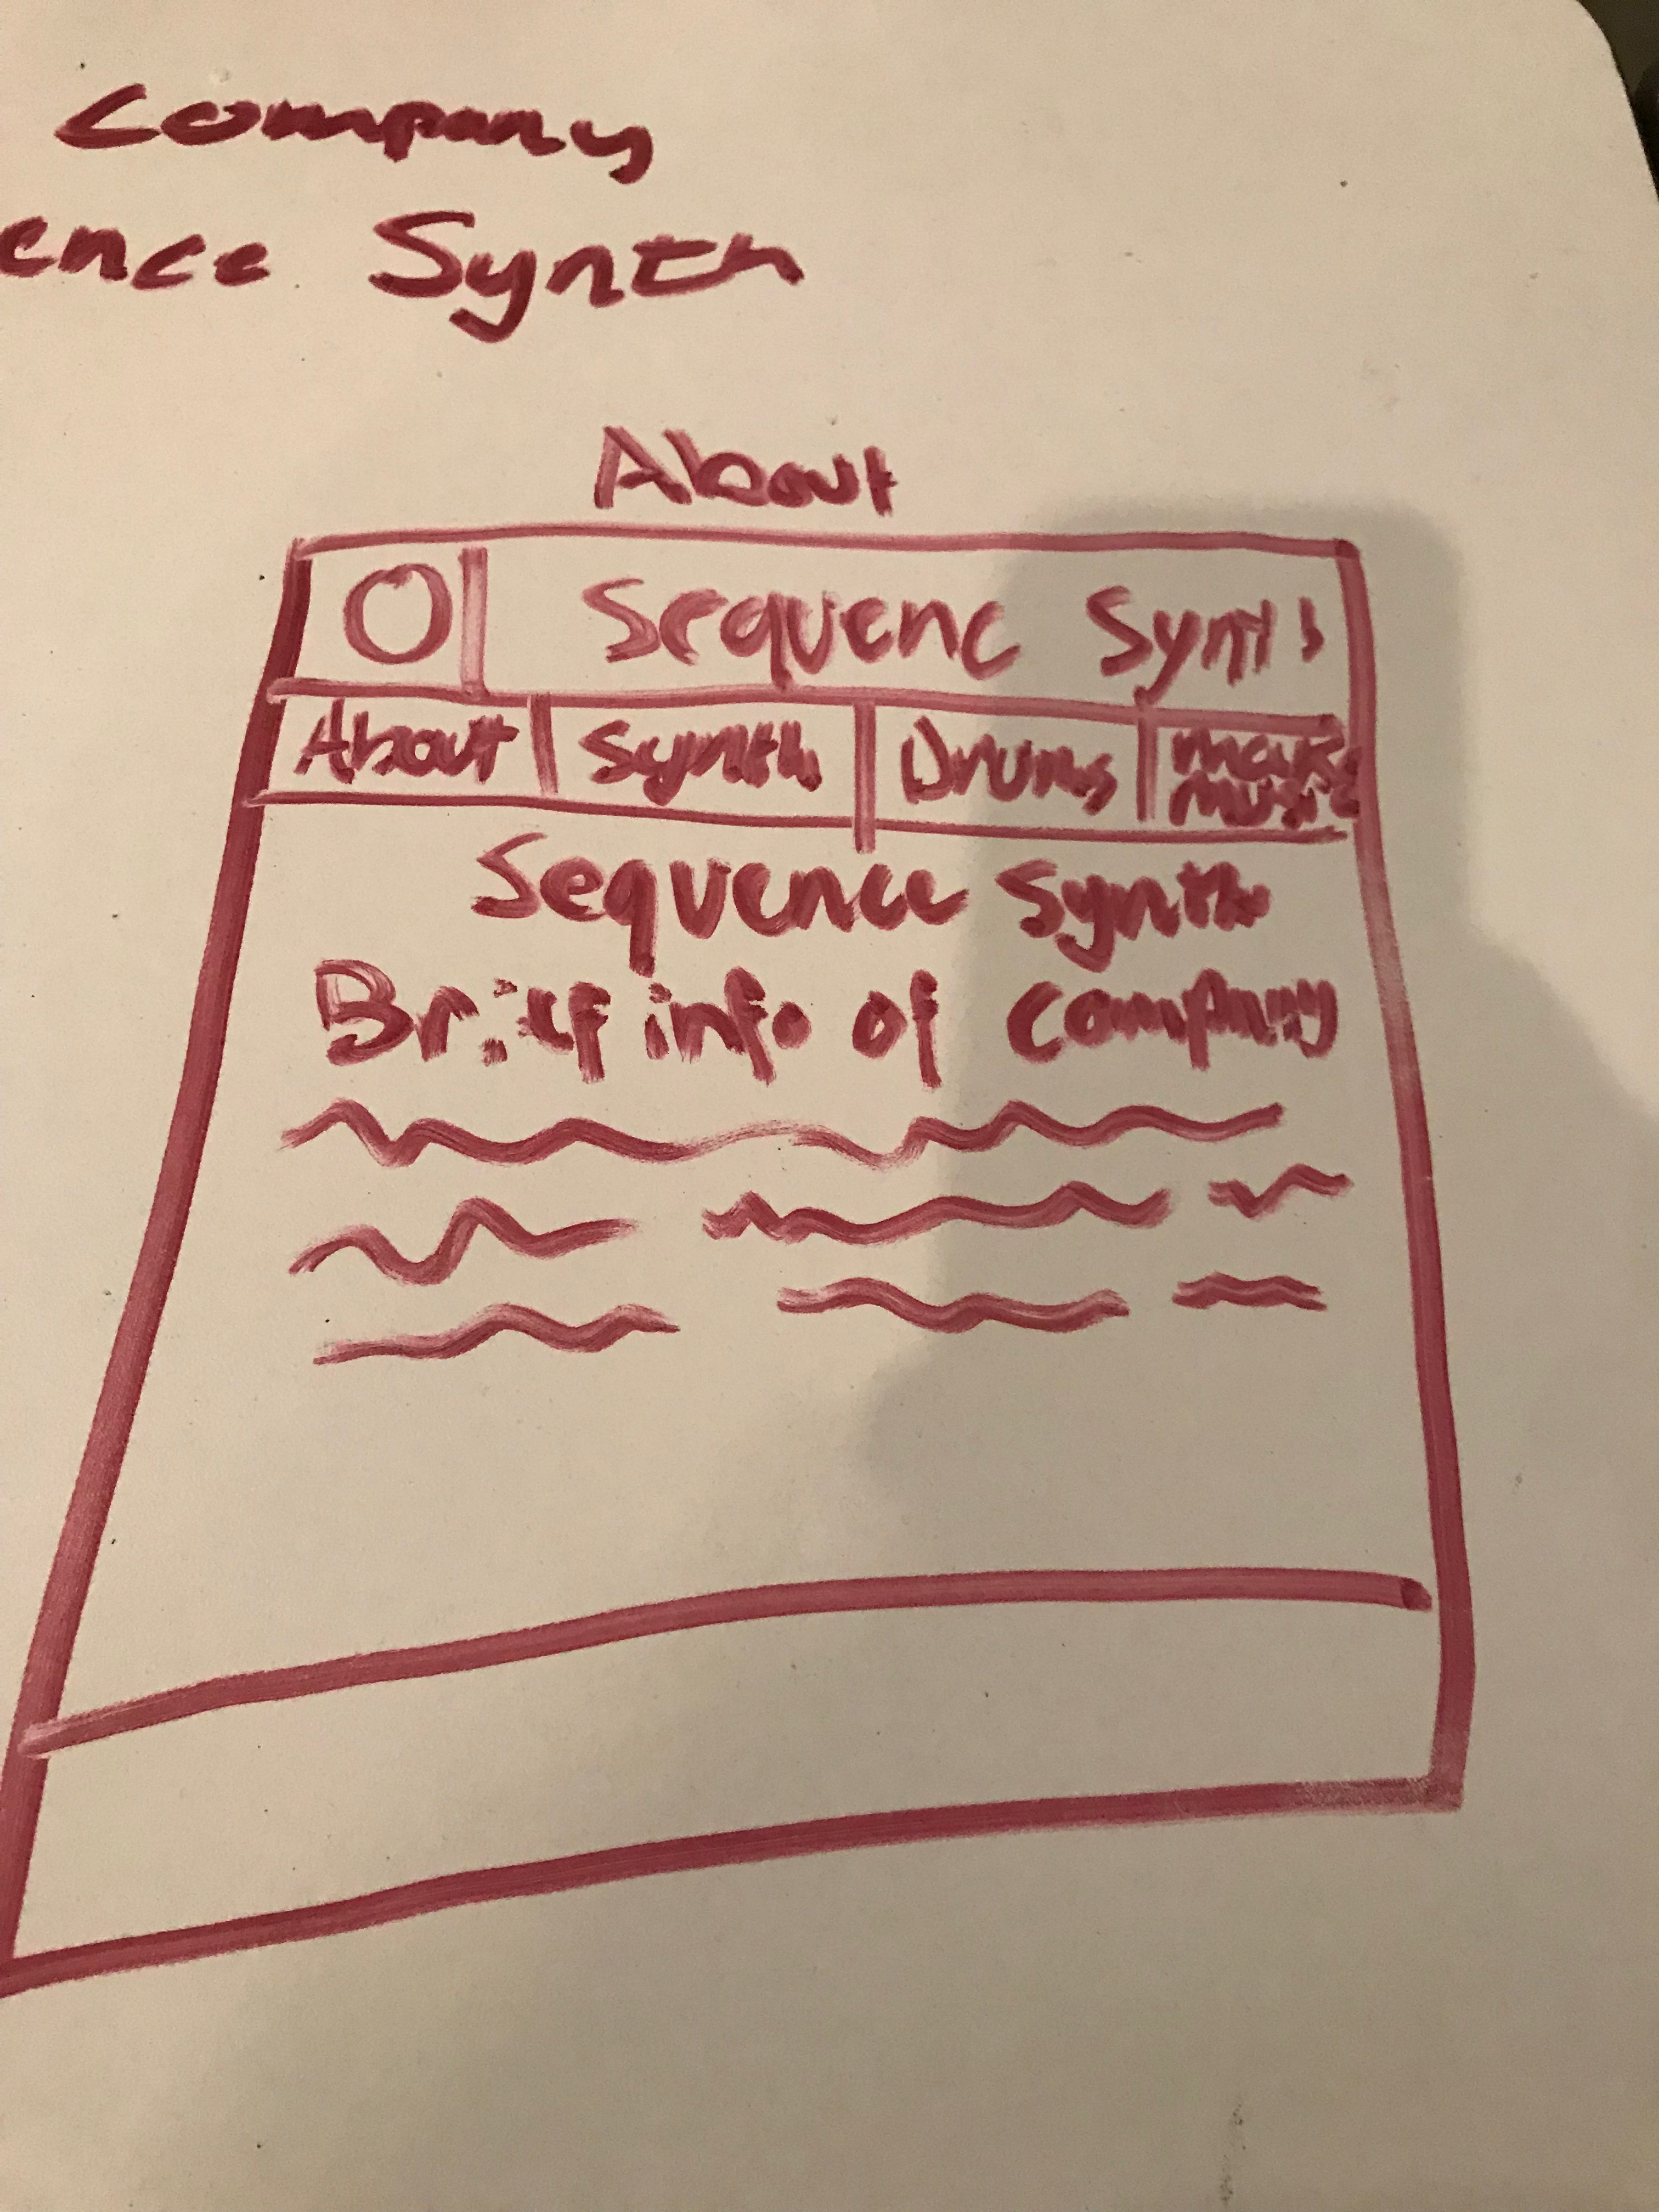 Company
ence Synth
About
Sequenc Synth
About Synth Drums make
music
Sequence Synth
Brief info of company